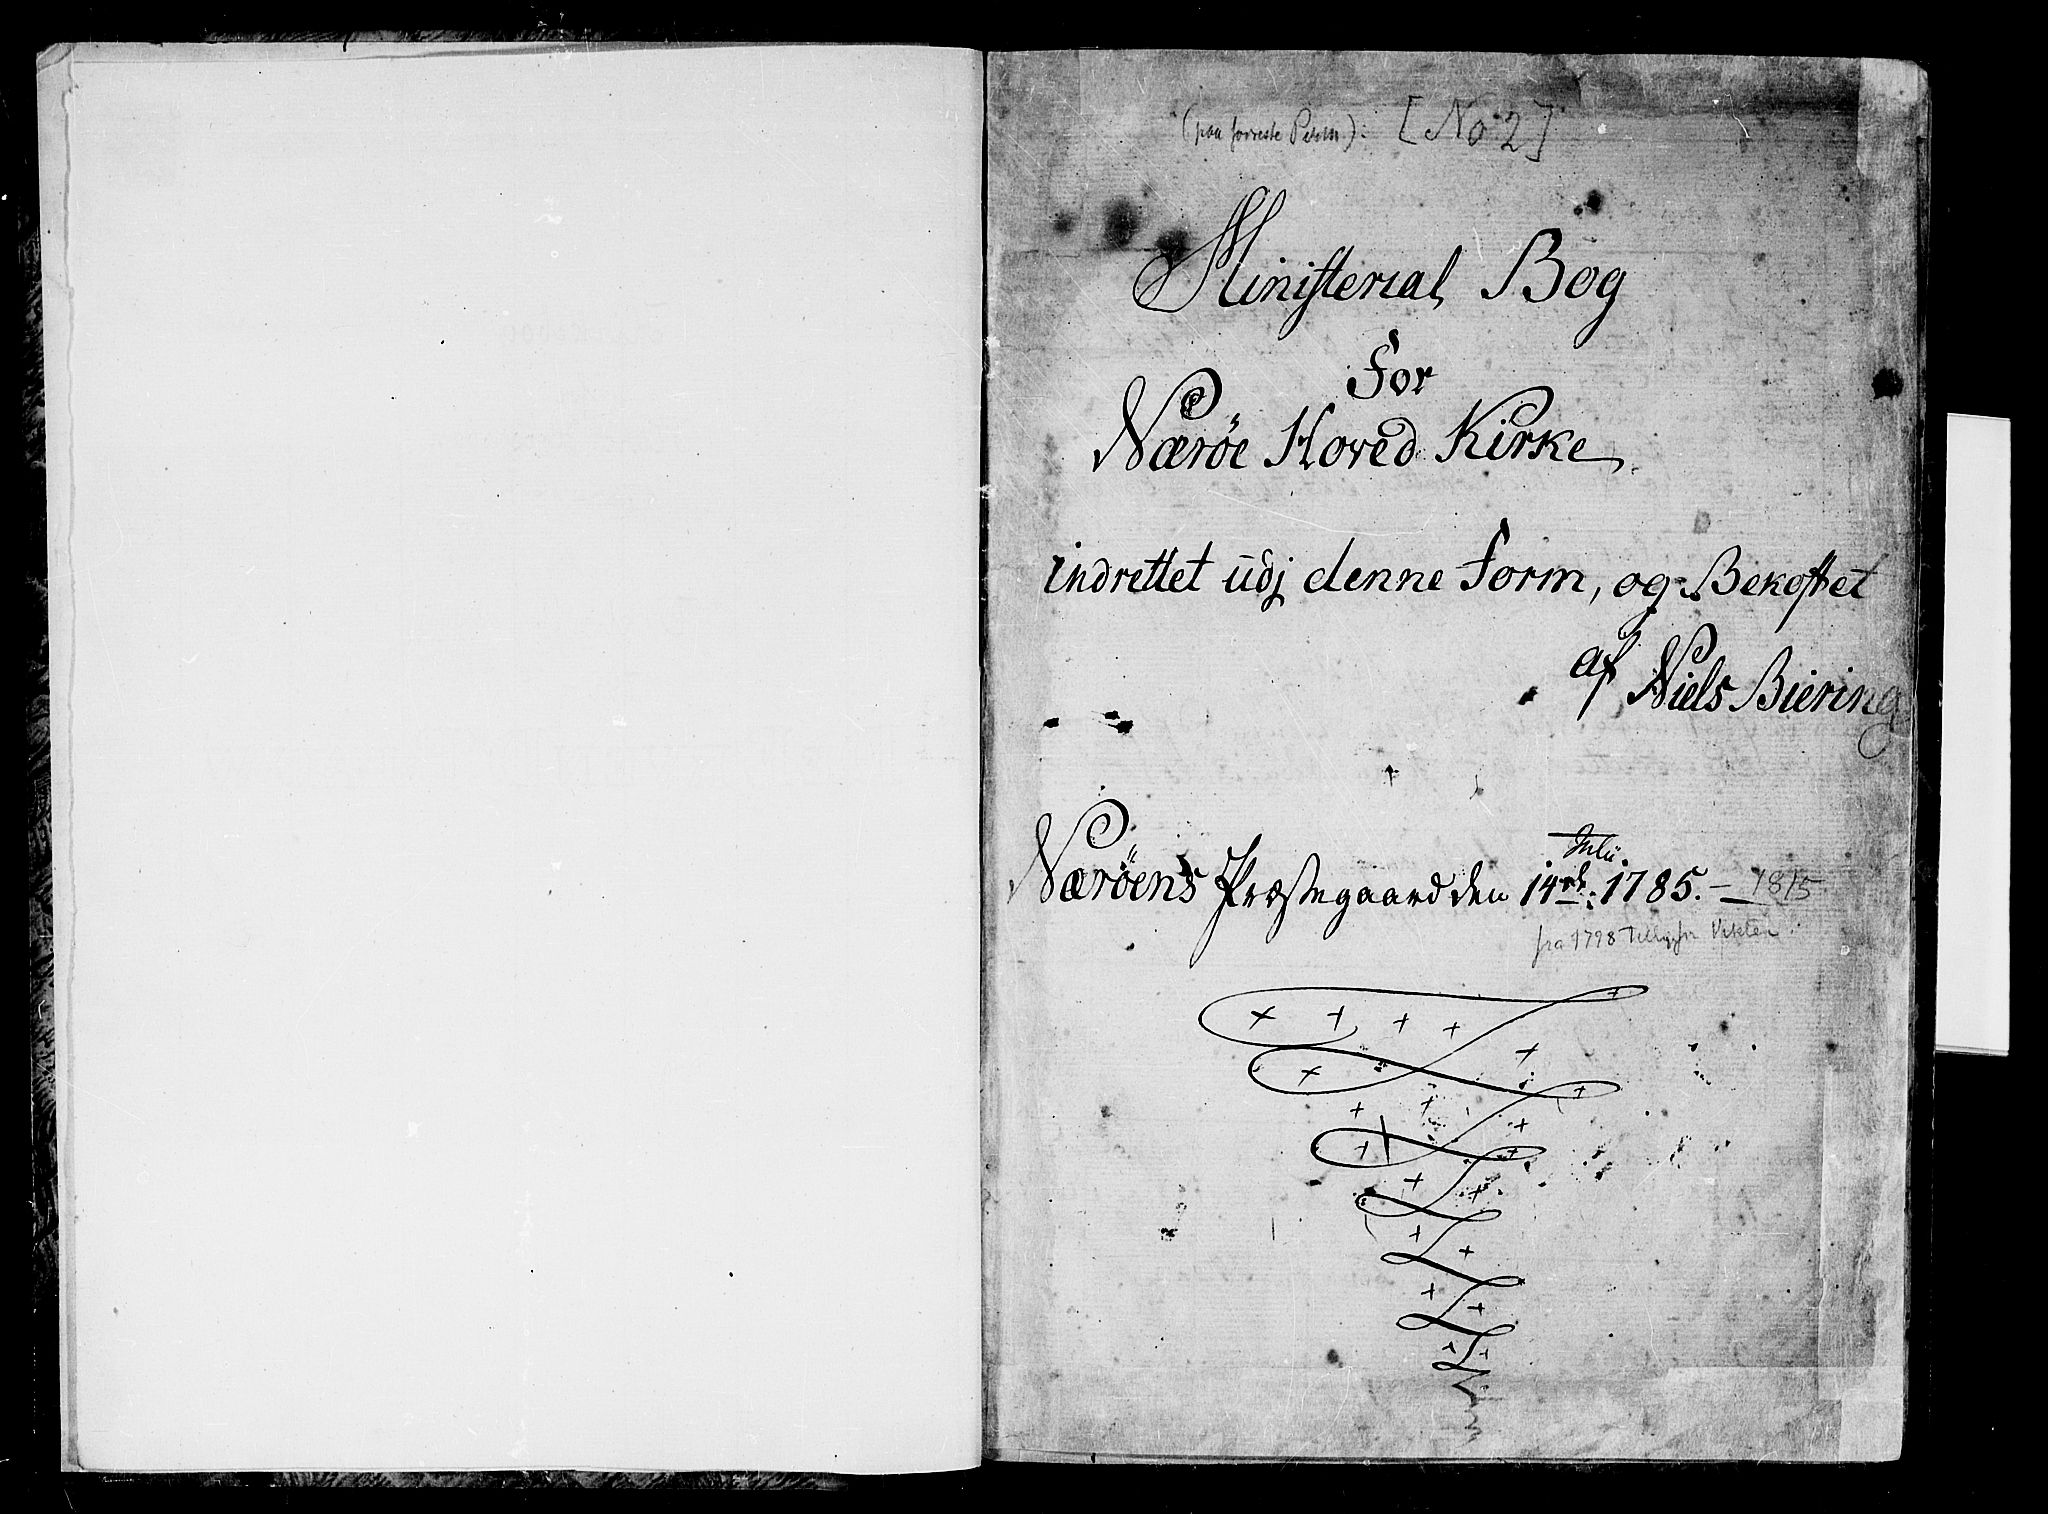 (paa forreste Perm): [No 2]
Ministerial Bog
For
Nærøe Hoved Kirke
indrettet udj denne Form, og Bekostet
af Niels Biering
Julii
Næröens Præstegaard den 14de: 1785. – 1815
fra 1798 Vikten